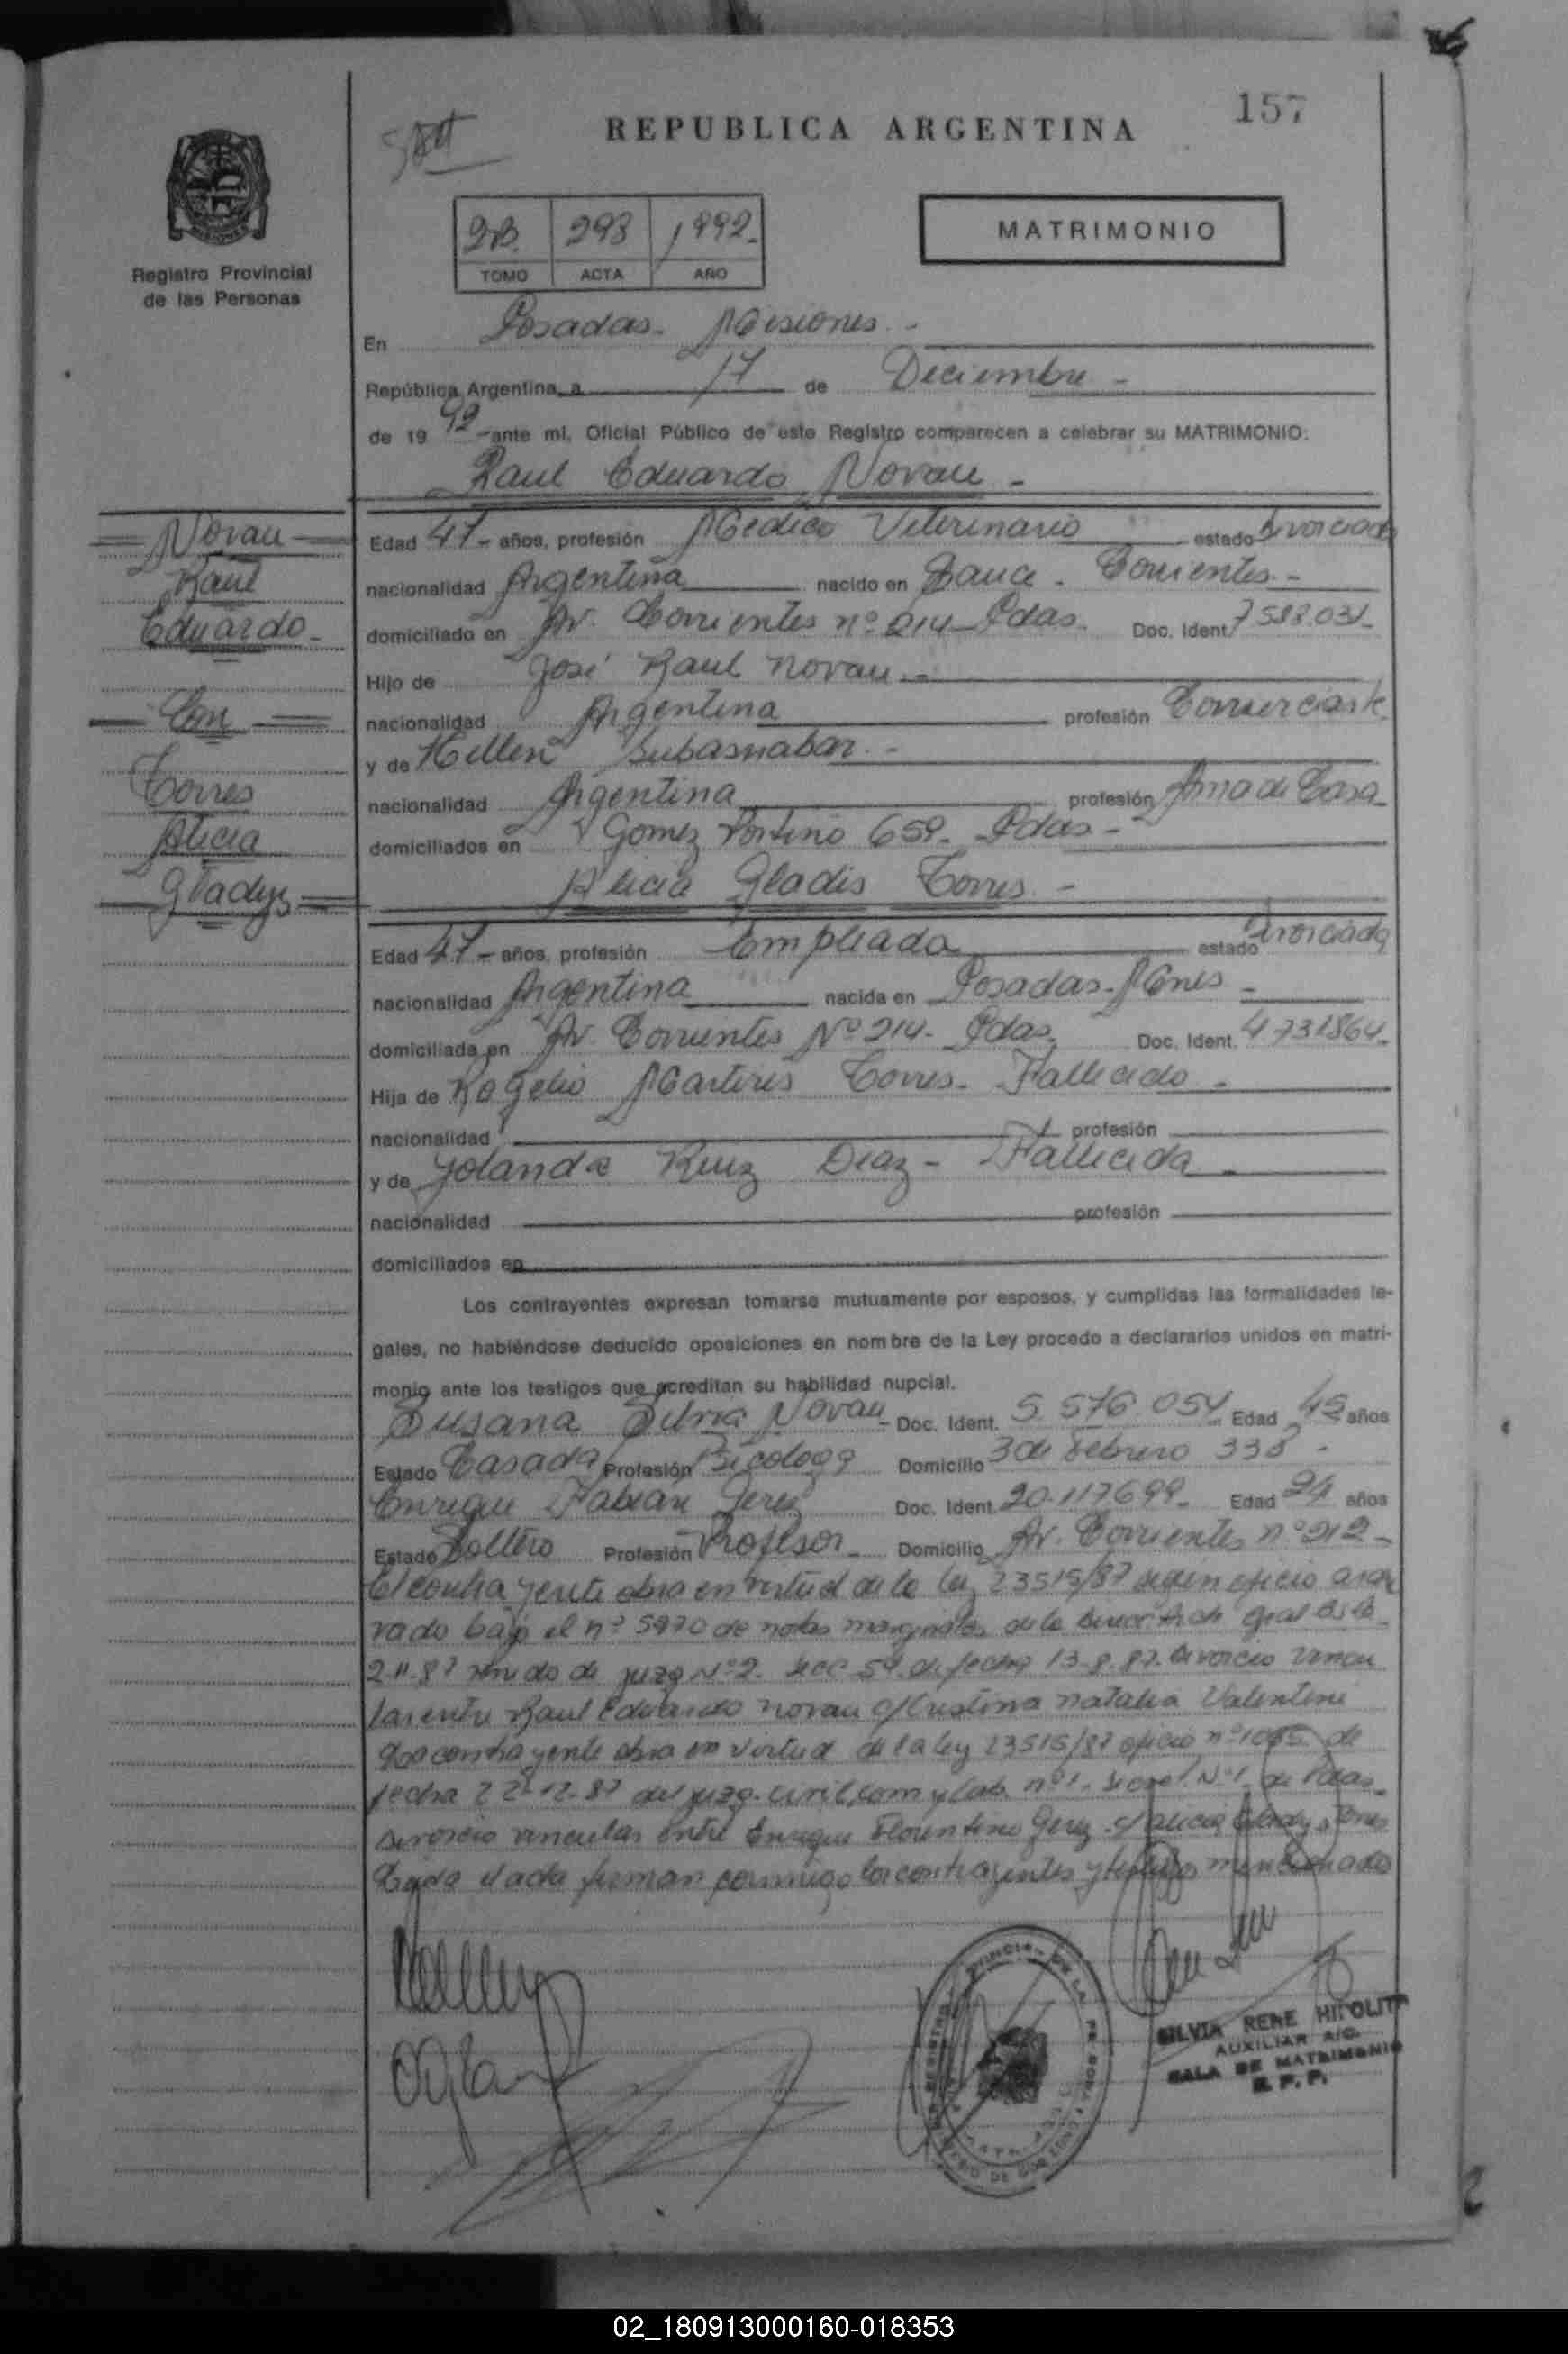 157
REPUBLICA ARGENTINA
2B. 293 1992.
TOMO ACTA AÑO
MATRIMONIO
Registro Provincial
de las Personas
En Posadas - Misiones -
República Argentina, a 17 de Deciembre -
de 1992 ante mi, Oficial Público de este Registro comparecen a celebrar su MATRIMONIO:
Raul Eduardo Novau -
Novau
Raul
Eduardo -
Con
Torres
Alicia
Gladys
Edad 47 - años, profesión Medico Veterinario estado Divorciado
nacionalidad Argentina nacido en Sauce - Corrientes -
domiciliado en Av. Corrientes nº 214 - Pdas. Doc. Ident. 7.583.031 -
Hijo de José Raul Novau -
nacionalidad Argentina profesión Comerciante
y de Hellen -
nacionalidad Argentina profesión Ama de Casa
domiciliados en Gomez Portino 659 - Pdas -
Alicia Gladis Torres -
Edad 47 - años, profesión Empleada estado Divorciada
nacionalidad Argentina nacida en Posadas - Mnes -
domiciliada en Av. Corrientes Nº 214 - Pdas. Doc. Ident. 4.731864 -
Hija de Rogelio Martires Torres - Fallecido -
nacionalidad profesión
y de Yolanda Ruiz Diaz - Fallecida -
nacionalidad profesión
domiciliados en
Los contrayentes expresan tomarse mutuamente por esposos, y cumplidas las formalidades le-
gales, no habiéndose deducido oposiciones en nombre de la Ley procedo a declararlos unidos en matri-
monio ante los testigos que acreditan su habilidad nupcial.
Susana Silvia Novau - Doc. Ident. 5.576.054 Edad 45 años
Estado Casada Profesión Psicologa Domicilio 3 de Febrero 338 -
Enrique Fabián Gerez Doc. Ident. 20.117699 - Edad 24 años
Estado Soltero Profesión Profesor - Domicilio Av. Corrientes nº 212 -
El contrayente obra en virtud de la ley 23515/87 segun oficio archi
vado bajo el nº 5970 de notas marginales de la Gral
2-11-87 de juzg Nº 2. Secc 5ª. de fecha 13-8-87. Divorcio vincu
lar entre Raul Eduardo Novau c/ Cristina Natalia Valentini
contrayente obra en virtud de la ley 23515/87 oficio nº 1065 de
fecha 22-12-87 del juzg. civil, com y lab. nº 1. Secret. Nº 1 de Pdas -
Divorcio vincular entre Enrique Florentino Gerez c/ Alicia Gladys Torres
Leida el acta firman conmigo los contrayentes y testigos mencionados
SILVIA RENE HIPOLITA
AUXILIAR A/C.
SALA DE MATRIMONIO
R. P. P.
02_180913000160-018353